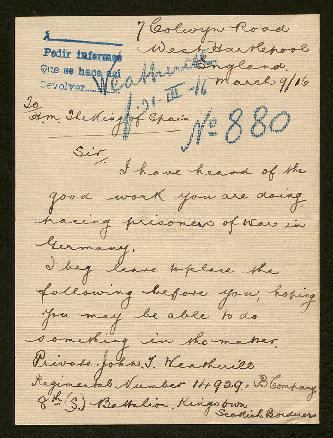 7 Colwyn Road
West Hartlepool
England
March 9/16
A
Pedir informes
Que se haga así
Devolver
Weatherill
21-III-16
Nº 880
To
H.M. The King of Spain
Sir,
I have heard of the
good work you are doing
tracing prisoners of War in
Germany.
I beg leave to place the
following before you, hoping
you may be able to do
something in the matter.
Private John T. Weatherill
Regimental Number 14929. B Company
8th (S.) Battalion, Kingsown
Scottish Borderers